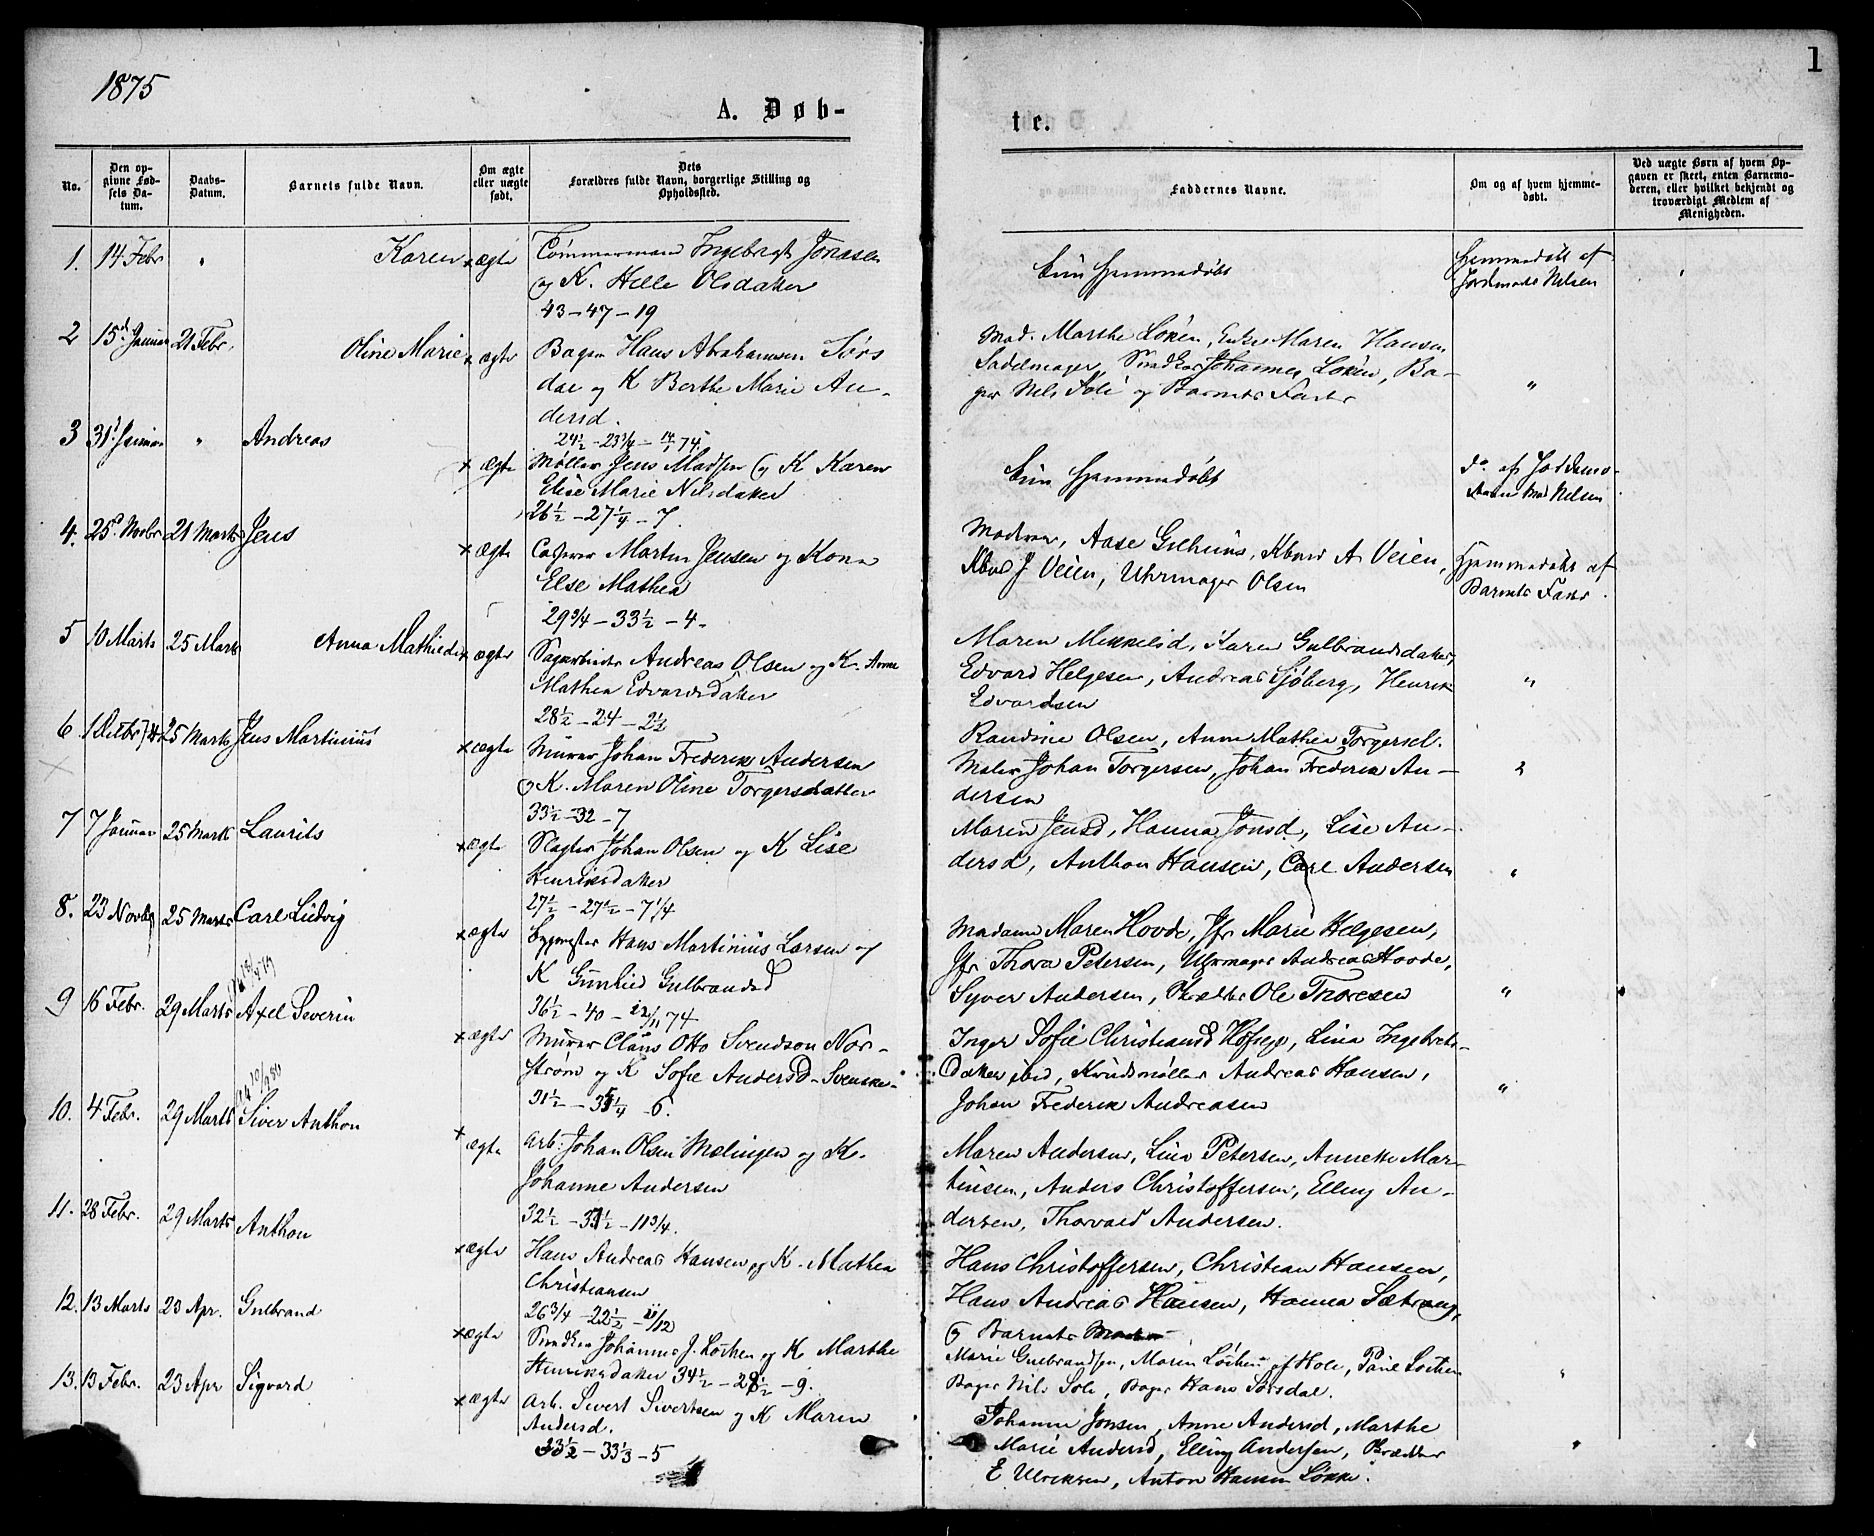 1875
1
A. Døb-
te.
No.
Den opgivne Fødsels Datum.
Daabs-Datum.
Barnets fulde Navn.
Om ægte eller uægte født.
Dets Forældres fulde Navn, borgerlige Stilling og Opholdssted.
Faddernes Navne.
Om og af hvem hjemmedøbt.
Ved uægte Børn af hvem Opgaven er skeet, enten Barnemoderen, eller hvilket bekjendt og troværdigt Medlem af Menigheden.
1. 14 Febr " Karen × ægte Tømmermand Ingebregt Jonasen
og K. Helle Olsdatter
43 – 47 – 19
Kun hjemmedøbt
Hjemmedøbt af
Jordmoder Nelsen
2 15d Januar 21 Febr. Oline Marie × ægte Bager Hans Abrahamsen Sørs
dal og K Berthe Marie An-
dersd.
24½ – 23¼ – 14/1 74.
Mad. Marthe Løken, Enke Maren Hansen
Sadelmager, Snedker Johannes Løken, Ba-
ger Nils Sole og Barnets Fader "
3 31d Januar " Andreas × ægte Møller Jens Madsen og K Karen
Elise Marie Nilsdatter
26½ – 27¼ – 7.
Kun hjemmedøbt
do af Jordemo-
deren Mad Nelsen
4. 25d Novbr 21 Marts Jens × ægte Martin Jensen og Kone
Else Mathea
29¾ – 33½ – 4.
Moderen, Aase Gulhuus, A. Veien,
J Veien, Uhrmager Olsen
Hjemmedøbt af
Barnets Fader
5 10 Marts 25 Marts Anna Mathilde × ægte Andreas Olsen og K. Anne
Mathea Edvardsdatter
28½ – 24 – 2½
Maren Mikkelsd, Karen Gulbrandsdatter,
Edvard Helgesen, Andreas Sjøberg, Henrik
Edvardsen "
6. 1 Octbr 74 25 Marts Jens Martinius × ægte Murer Johan Frederik Andersen
og K. Maren Oline Torgersdatter
33½ – 32 – 7
Randine Olsen, Anne Mathea Torgersd.
Maler Johan Torgersen, Johan Frederik An-
dersen
7 7 Januar 25 Mark Laurits × ægte Slagter Johan Olsen og K Lise
Henriksdatter
27½ – 27½ – 7¼
Maren Jensd, Hanna Jonsd, Lise An-
dersd, Anthon Hansen, Carl Andersen "
8. 23 Novbr 25 Marts Carl Ludvig × ægte Bygmester Hans Martinius Larsen og
K Gunhild Gulbrandsd
36½ – 40 – 22/11 74
Madame Maren Hovde, Jfr Marie Helgesen,
Jfr Thora Petersen, Uhrmager Andreas Hovde,
Syver Andersen, Skrædder Ole Thoresen "
9 16 Febr. 29 Marts Axel Severin × ægte Murer Claus Otto Svendson Nor-
strøm og K Sofie Andersd – Svenske –
31½ – 35¼ – 6.
Inger Sofie Christiansd Hofsege, Lina Ingebrets-
datter ibid, Andreas Hansen,
Johan Frederik Andreasen "
10. 4 Febr. 29 Marts Siver Anthon × ægte Arb. Johan Olsen Mælingen og K.
Johanne Andersen
32½ – 31½ – 11¾.
Maren Andersen, Lina Petersen, Annette Mar-
tinsen, Anders Christoffersen, Elling An-
dersen, Thorvald Andersen.
11. 28 Febr. 29 Marts Anthon × ægte Hans Andreas Hansen og K. Mathea
Christiansen
26¾ – 22½ – 11/12
Hans Christoffersen, Christian Hansen,
Hans Andreas Hansen, Hanna Sætrang,
og Barnets Moder
12. 13 Marts 23 Apr. Gulbrand × ægte Snedker Johannes J. Løcken og K Marthe
Henriksdatter 34½ – 28½ – 9.
Marie Gulbrandsen, Maren Løcken af Hole, Paul Løcken
Bager Nils Sole, Bager Hans Sørsdal. "
13. 13 Febr. 23 Apr Sigvard × ægte Arb. Sivert Sivertsen og K Maren
Andersd.
33½ – 33⅓ – 5
Johanne Jonsen, Anne Andersd, Marthe
Marie Andersd, Elling Andersen,
E Ulriksen, Anton Hansen Løkke. "